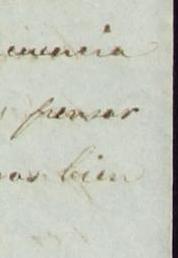 cuencia
pensar
mas bien